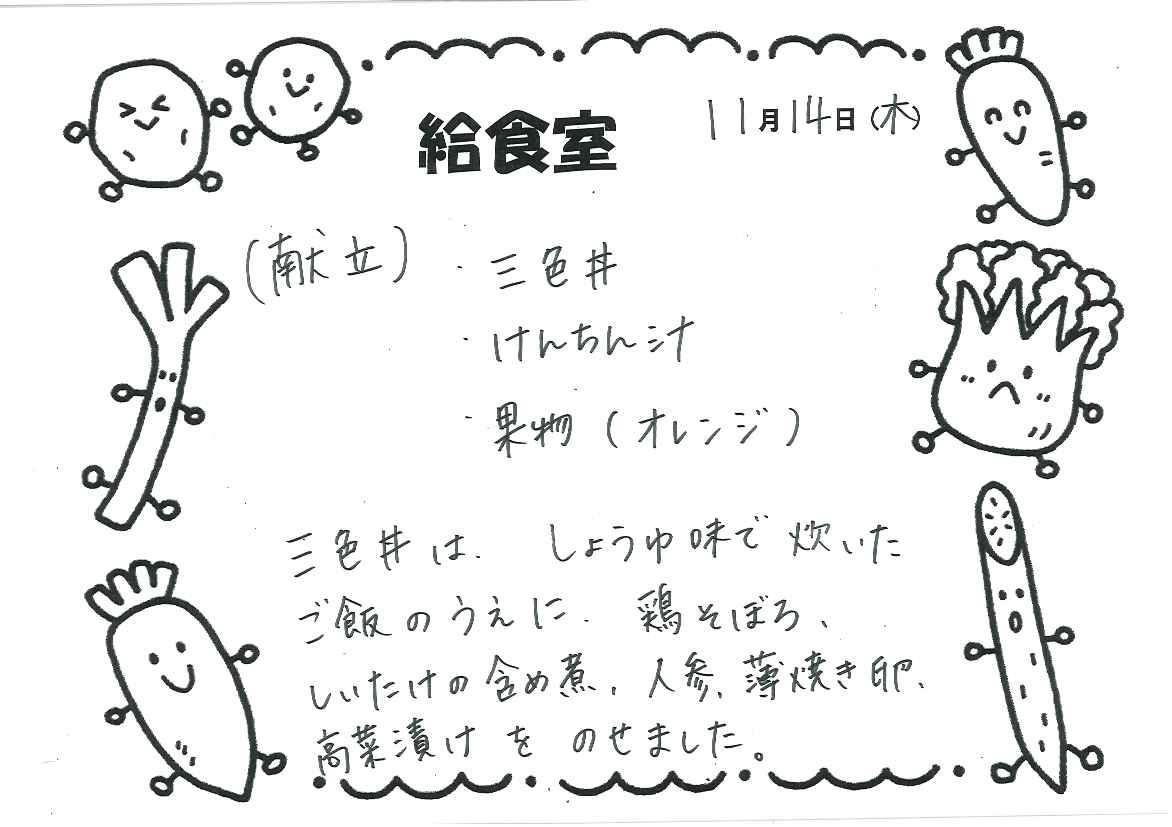 給食室
11月14日(木)
(献立)
・三色丼
・けんちん汁
・果物(オレンジ)
三色丼は、しょうゆ味で炊いた
ご飯のうえに、鶏そぼろ、
しいたけの含め煮、人参、薄焼き卵、
高菜漬けをのせました。